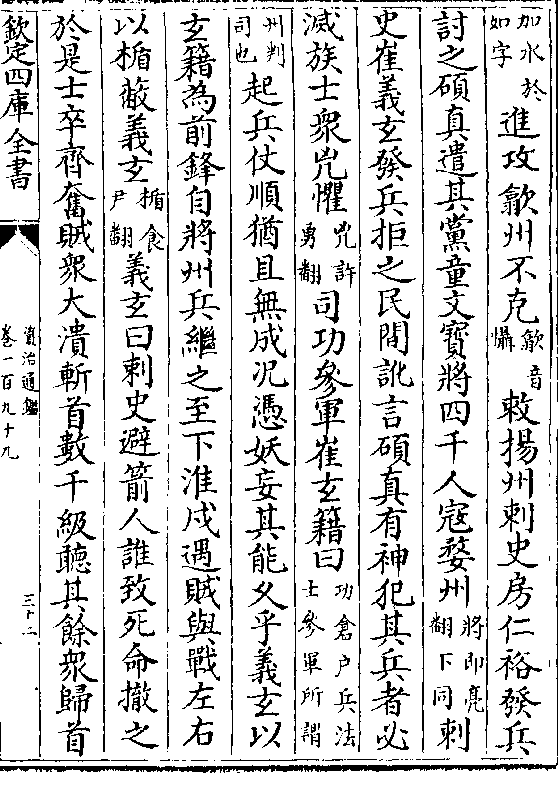 加水於如字進攻歙州不克歙音懾敕揚州刺史房仁裕發兵
討之碩真遣其黨童文寳將四千人寇婺州將即亮翻下同刺
史崔義玄發兵拒之民間訛言碩真有神犯其兵者必
滅族士衆兇懼兇許勇翻司功參軍崔玄籍曰功倉户兵法士參軍所謂
州判司也起兵仗順猶且無成况憑妖妄其能久乎義玄以
玄籍為前鋒自將州兵繼之至下淮戍遇賊與戰左右
以楯蔽義玄楯食尹翻義玄曰刺史避箭人誰致死命撤之
於是士卒齊奮賊衆大潰斬首數千級聽其餘衆歸首
欽定四庫全書
資治通鑑
卷一百九十九
三十二